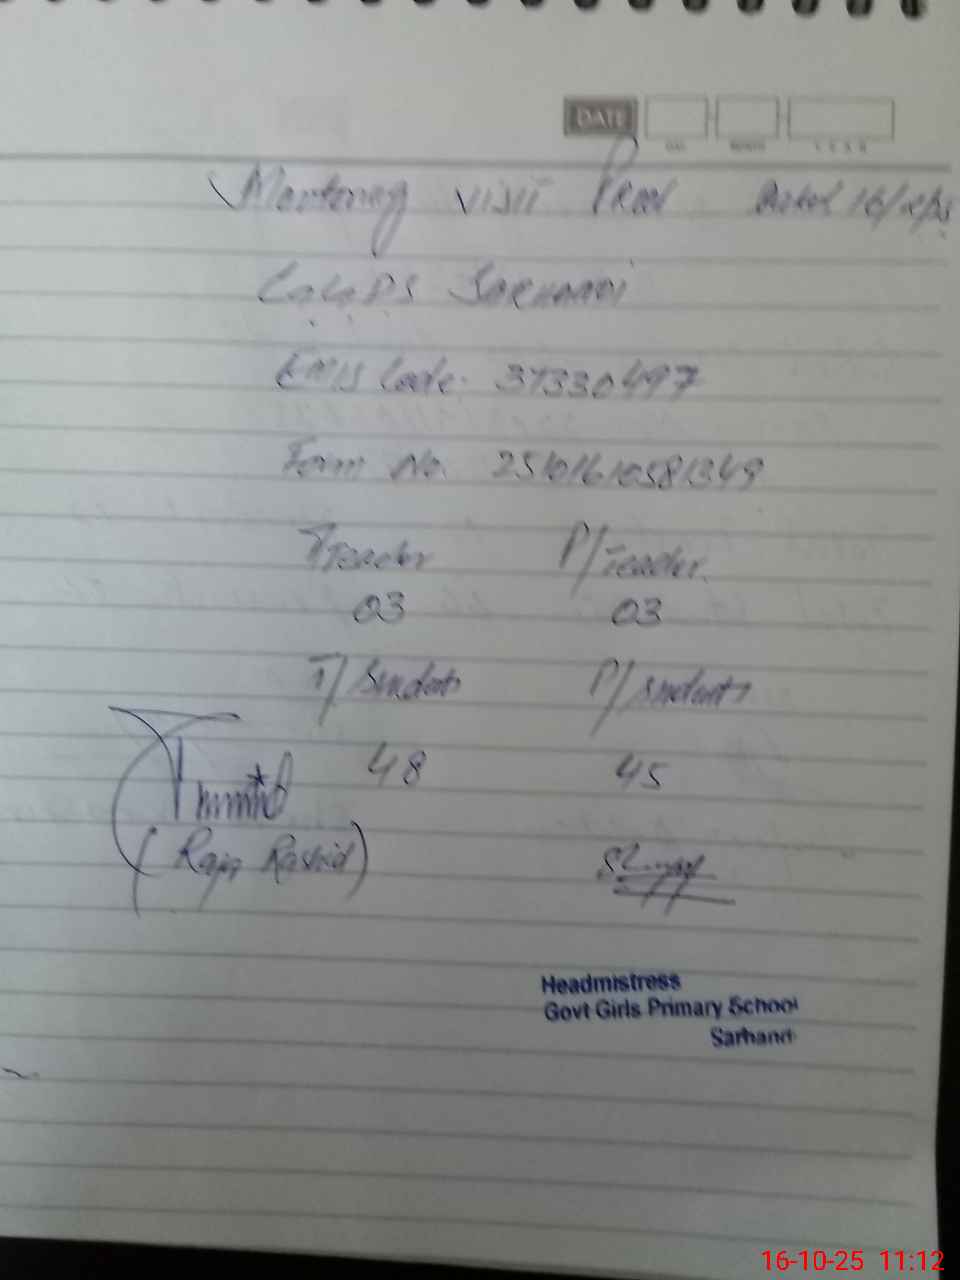 DATE
Montoring visit Proof Dated 16/10/25
GGPS SARHANDI
EMIS Code. 37330497
Form No. 25101610581349
T/Teacher P/Teacher.
03 03
T/Students P/Students
48 45
(Raja Rashid)
Headmistress
Govt Girls Primary School
Sarhand
16-10-25 11:12